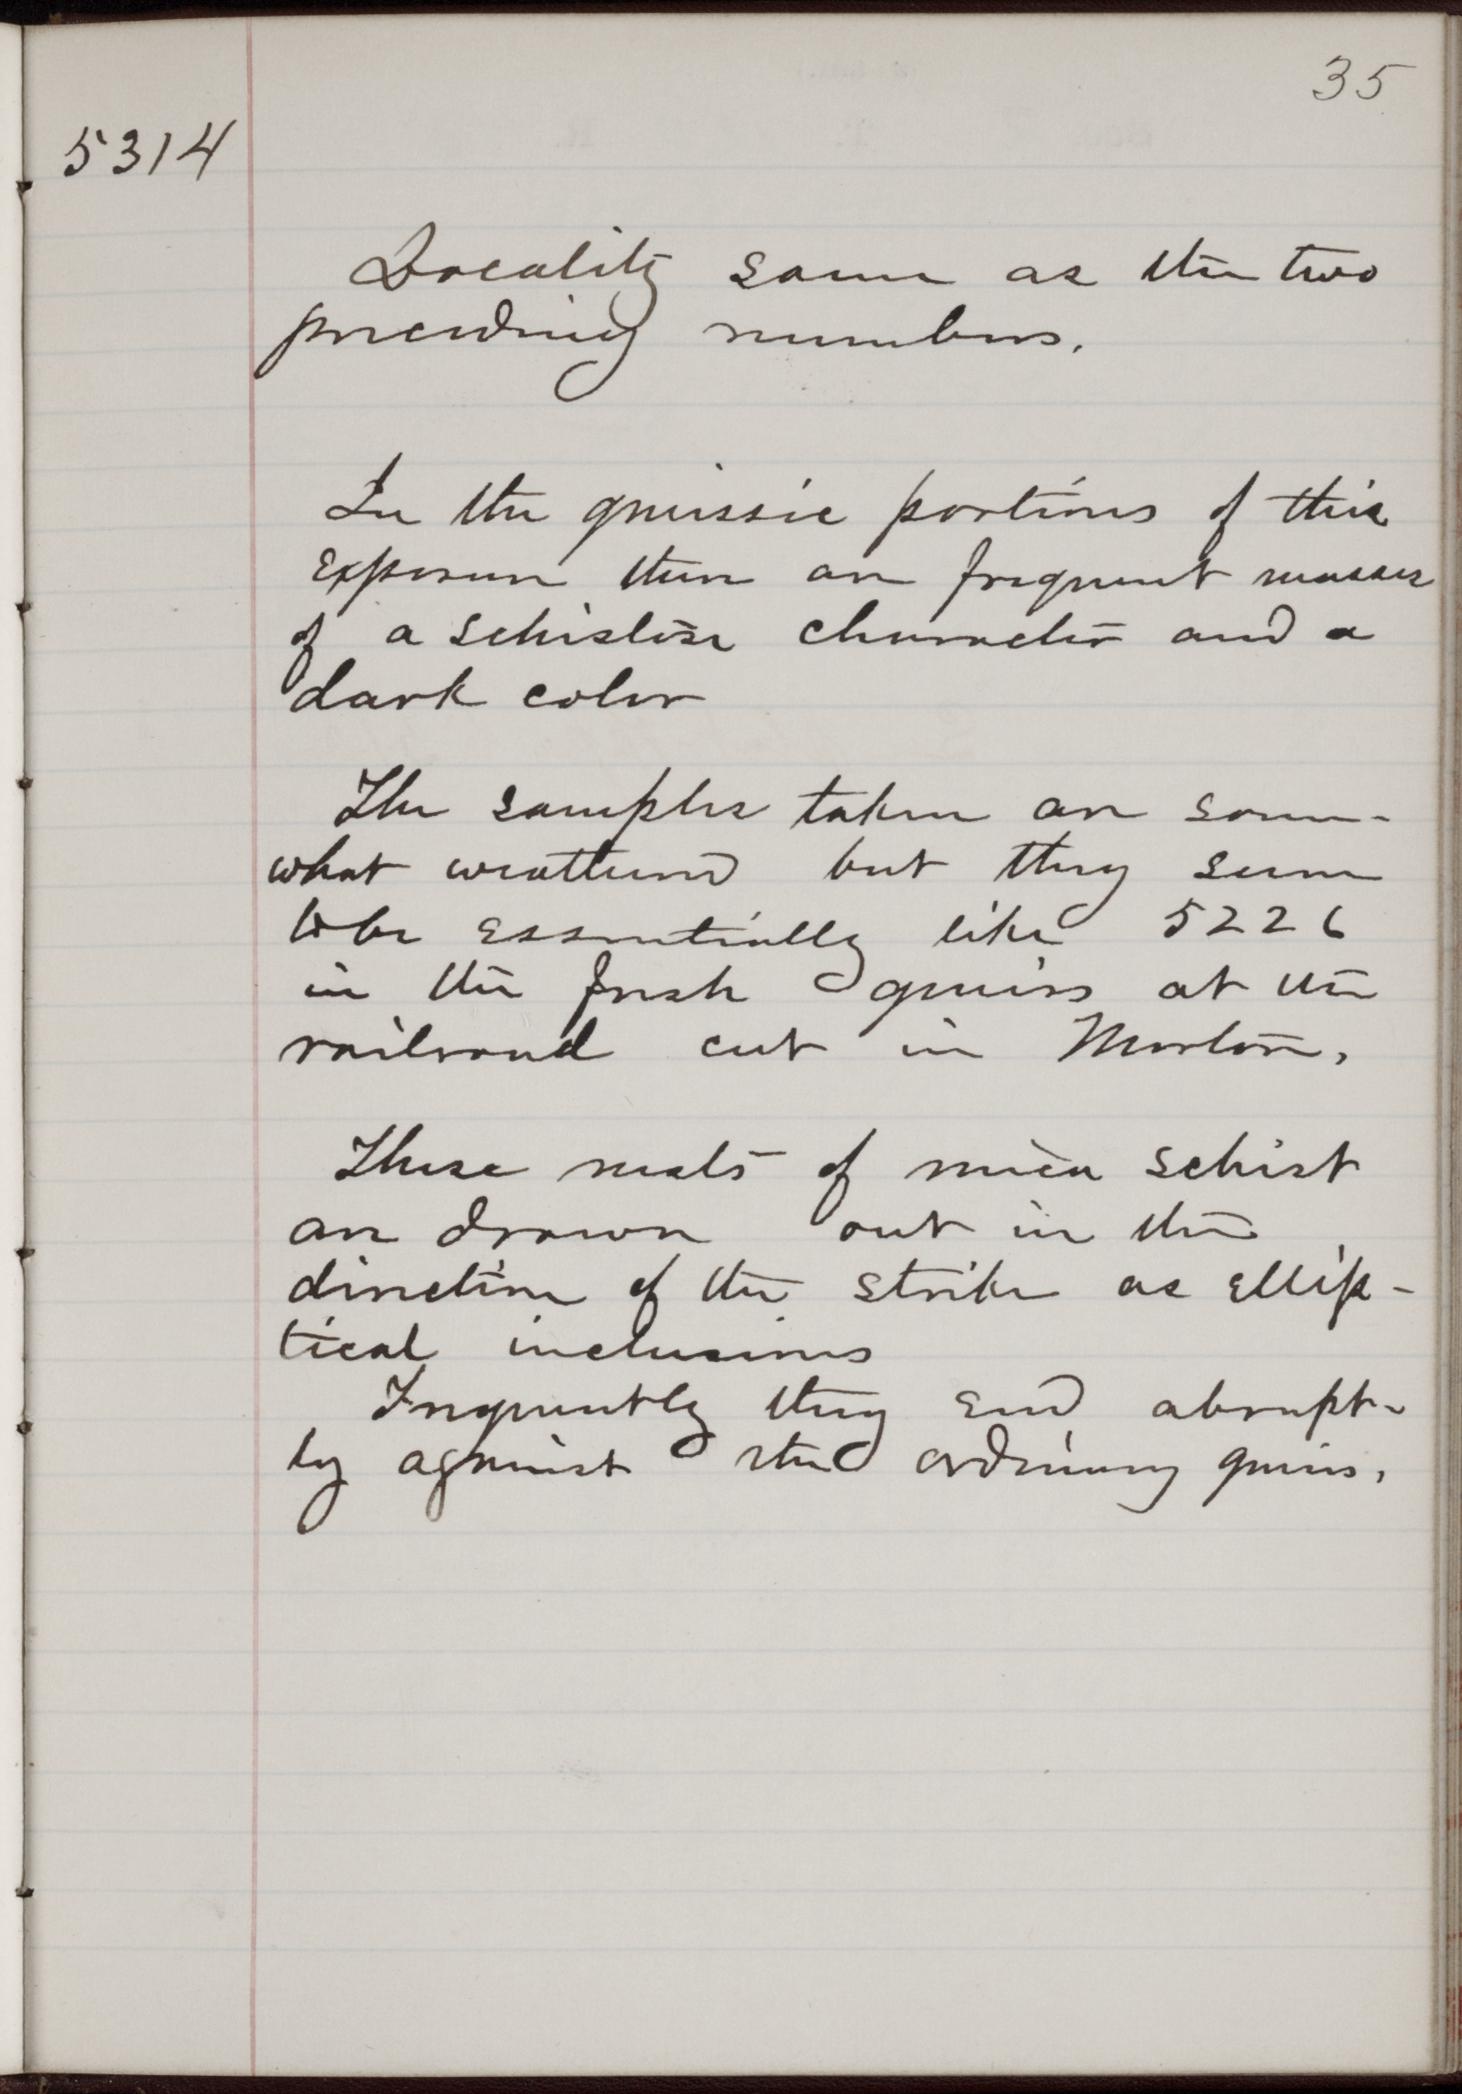 35
5314
Locality same as the two
preceding numbers.
In the gneissic portions of this
exposure there are frequent masses
of a schistose character and a
dark color
The samples taken are some-
what weathered but they seem
to be essentially like 5226
in the fresh gneiss at the
railroad cut in Morton.
These nests of mica schist
are drawn out in the
direction of the strike as ellip-
tical inclusions
Frequently they end abrupt-
ly against the ordinary gneiss.